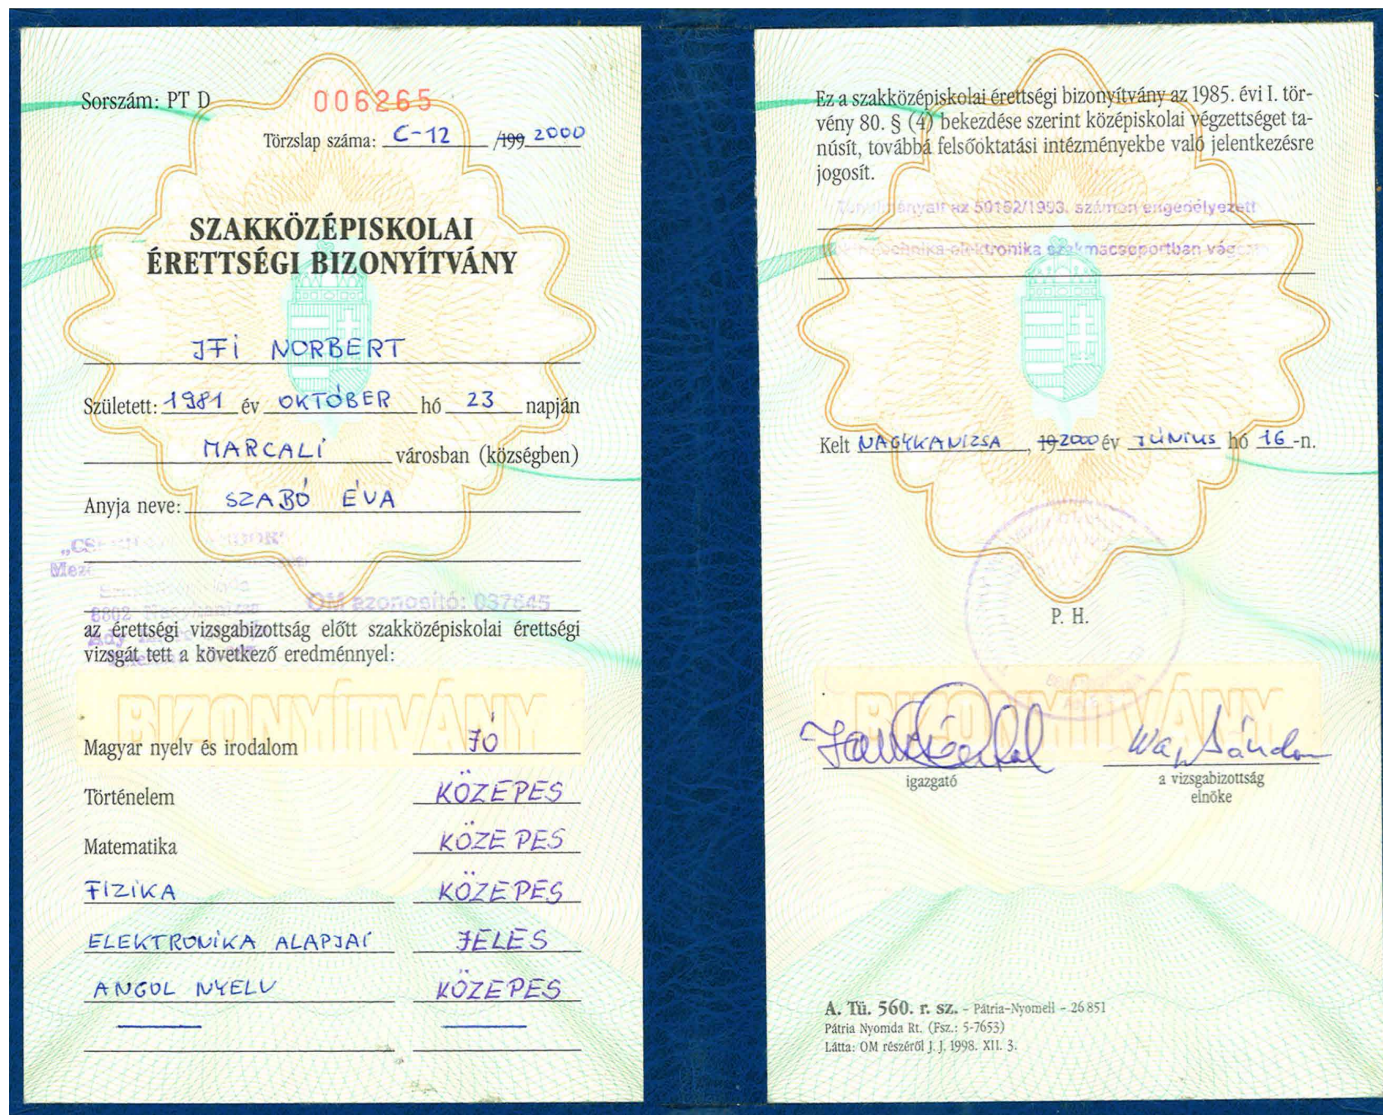 Sorszám: PT D 006265
Törzslap száma: C-12 /199 2000
SZAKKÖZÉPISKOLAI
ÉRETTSÉGI BIZONYÍTVÁNY
IFI NORBERT
Született: 1981 év OKTÓBER hó 23 napján
MARCALI városban (községben)
Anyja neve: SZABÓ ÉVA
OM azonosító: 037645
8802
az érettségi vizsgabizottság előtt szakközépiskolai érettségi
vizsgát tett a következő eredménnyel:
BIZONYÍTVÁNY
Magyar nyelv és irodalom JÓ
Történelem KÖZEPES
Matematika KÖZEPES
FIZIKA KÖZEPES
ELEKTRONIKA ALAPJAI JELES
ANGOL NYELV KÖZEPES
Ez a szakközépiskolai érettségi bizonyítvány az 1985. évi I. tör-
vény 80. § (4) bekezdése szerint középiskolai végzettséget ta-
núsít, továbbá felsőoktatási intézményekbe való jelentkezésre
jogosít.
az 50162/1993. számon engedélyezett
szakmacsoportban
Kelt NAGYKANIZSA, 19 2000 év JÚNIUS hó 16 -n.
P. H.
BIZONYÍTVÁNY
igazgató
a vizsgabizottság
elnöke
A. Tü. 560. r. sz. - Pátria-Nyomell - 26 851
Pátria Nyomda Rt. (Fsz.: 5-7653)
Látta: OM részéről J. J. 1998. XII. 3.